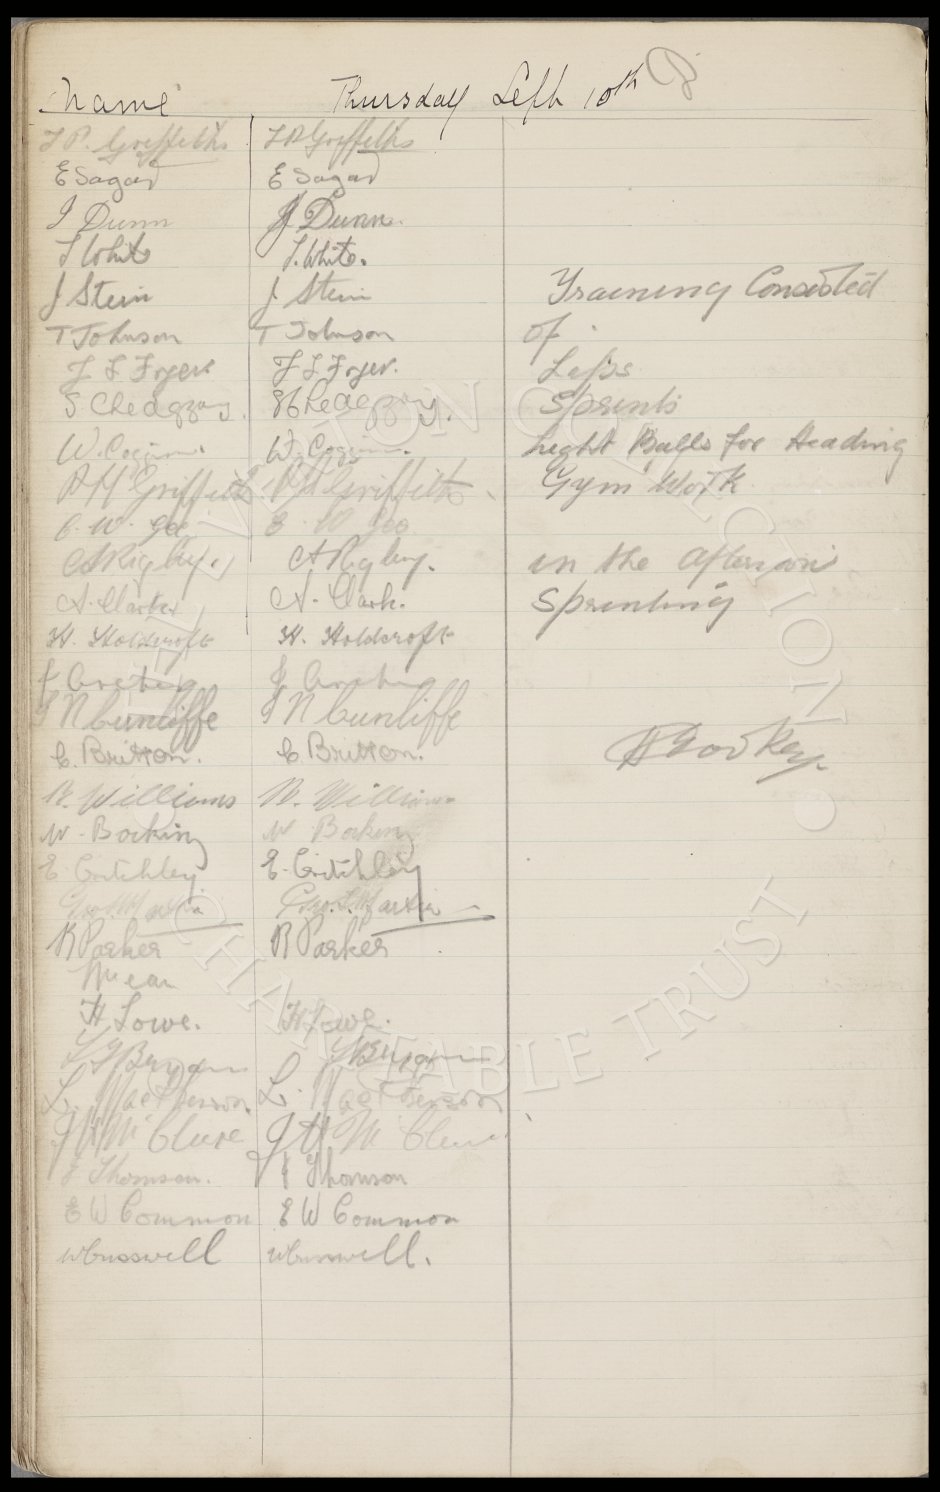 Name Thursday Sept 10th
T P. Griffiths T P Griffiths
E Sagar E Sagar
J Dunn J Dunn.
T White T. White.
J Stein J. Stein
T Johnson T Johnson
J L Fryer J L Fryer.
S Chedgzoy. S Chedgzoy.
W. Coggins. W. Coggins.
P H Griffiths P H Griffiths
C. W. Gee C. W. Gee
A Rigby. A Rigby.
A. Clark. A. Clark.
H. Holdcroft H. Holdcroft
J Archer J Archer
J N Cunliffe J N Cunliffe
C. Britton. C. Britton.
B. Williams B. Williams
W. Bocking W Bocking
E Critchley E. Critchley
Geo. S. Martin Geo. S. Martin
R Parker R Parker
McCar
H Lowe. H Lowe.
L. MacPherson L. MacPherson
J H McClure J H McClure
J Thomson. J Thomson
E W Common E W Common
W Cresswell W Cresswell.
Training Consisted
of.
Laps
Sprints
Light Balls for Heading
Gym Work
in the afternoon
Sprinting
H Cooke
EVERTON COLLECTION
CHARITABLE TRUST